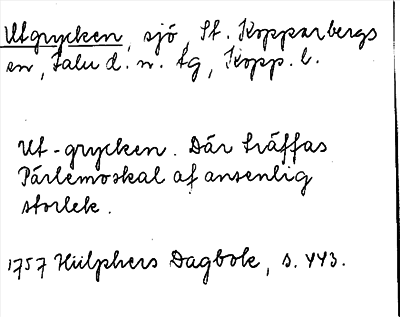 Utgrycken, sjö, St. Kopparbergs
sn, Falu d. n. tg, Kopp. l.
Ut-grycken. Där träffas
Pärlemoskal af ansenlig
storlek.
1757 Hülphers Dagbok, s. 443.